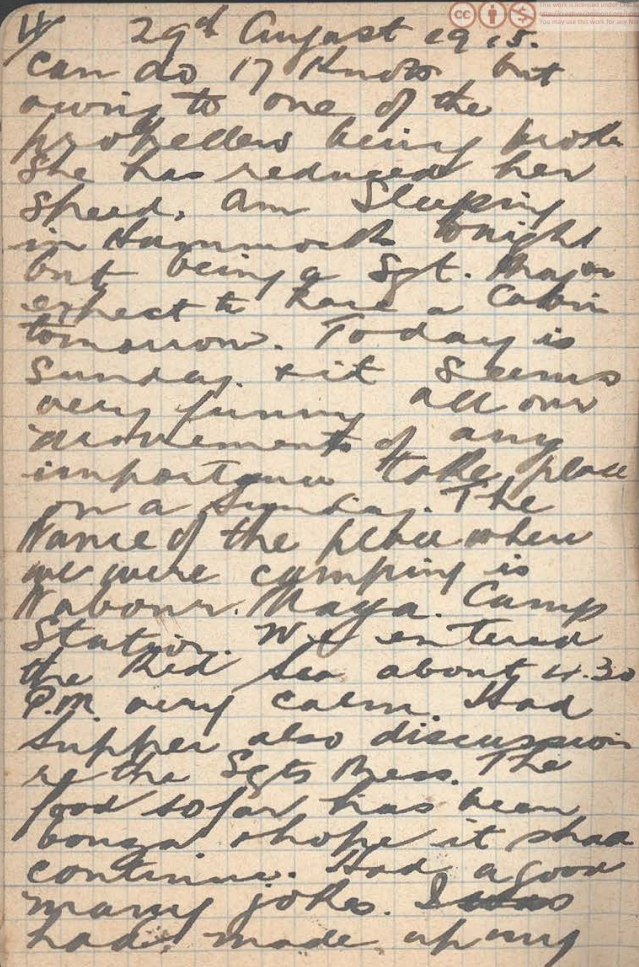 4/ 29th August 1915.
can do 17 Knots but
owing to one of the
propellers being broke
She has reduced her
Speed. Am Sleeping
in Hammock tonight
but being a Sgt. Major
expect to have a Cabin
tomorrow. Today is
Sunday & it Seems
very funny all our
movements of any
importance take place
on a Sunday. The
Name of the place where
we were camping is
Camp
Station. We entered
the Red Sea about 4.30
P.M. very calm. Had
Supper also discussion
re the Sgts Mess. The
food so far has been
bonza & hope it shall
continue. Had a good
many jokes. I was
had made up my